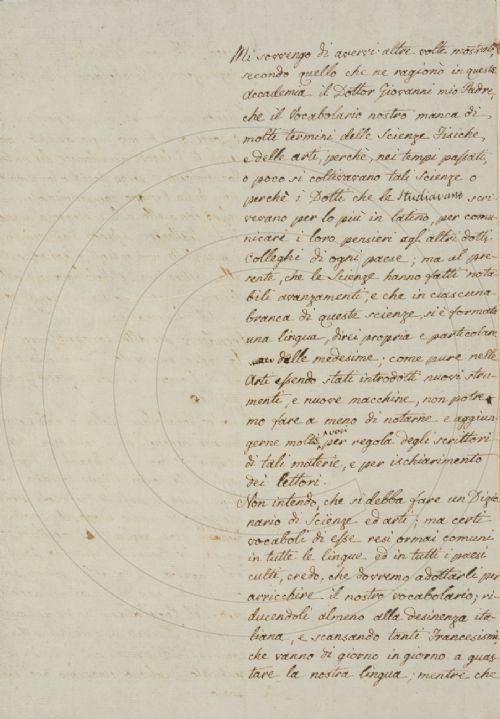 Mi sovvengo di avervi altre volte mostrato,
secondo quello che ne ragionò in questa
Accademia il Dottor Giovanni mio Padre,
che il Vocabolario nostro manca di
molti termini delle Scienze Fisiche,
e delle arti, perchè, nei tempi passati,
o poco si coltivavano tali scienze o
perchè i Dotti che le studiavano scri
vevano per lo più in latino, per comu
nicare i loro pensieri agli altri dotti
colleghi di ogni paese; ma al pre
sente, che le Scienze hanno fatti nota
bili avanzamenti, e che in ciascuna
branca di queste scienze, si è formata
una lingua, direi propria e particolare
delle medesime; come pure nelle
Arti essendo stati introdotti nuovi stru
menti, e nuove macchine, non potre
mo fare a meno di notarne e aggiun
gerne molte per regola degli scrittori
di tali materie, e per ischiarimento
dei lettori.
Non intendo, che si debba fare un Dizio
nario di Scienze ed arti; ma certi
vocaboli di esse resi ormai comuni
in tutte le lingue ed in tutti i paesi
culti, credo, che dovremo adottarli per
arricchire il nostro vocabolario; ri
ducendoli almeno alla desinenza ita
liana, e scansando tanti Francesismi,
che vanno di giorno in giorno a guas
tare la nostra lingua; mentre che